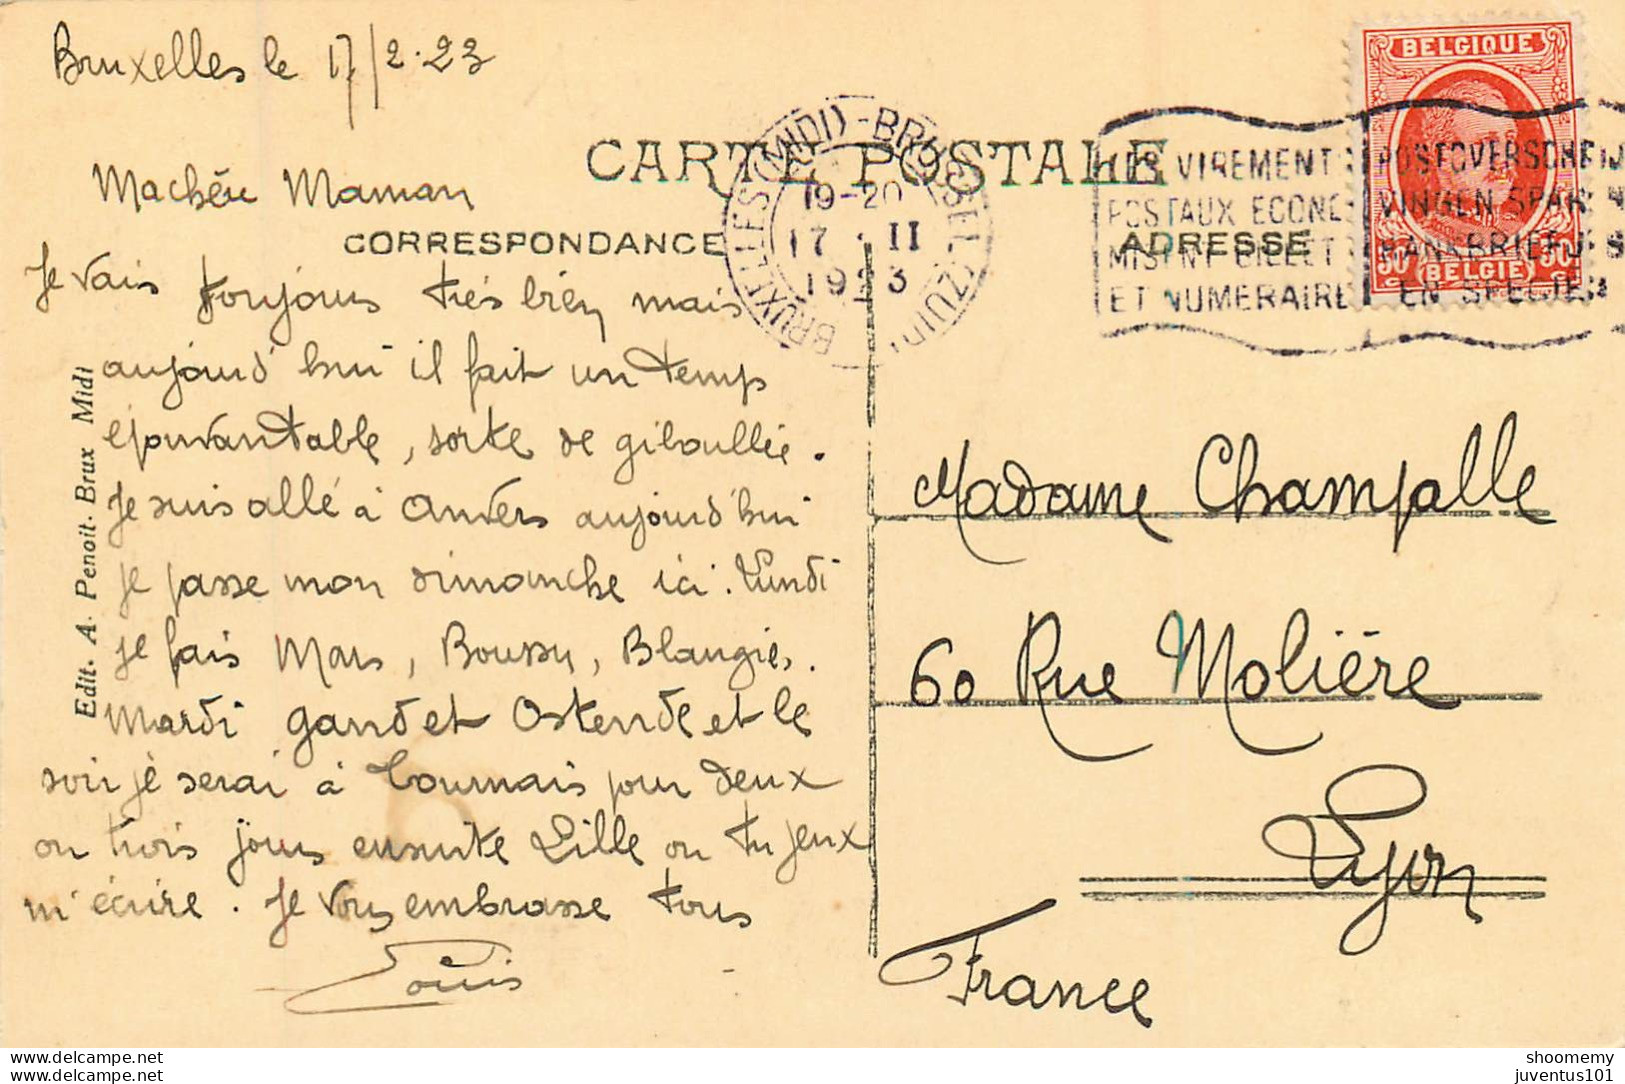 Bruxelles le 17/2.23
CARTE POSTALE
BELGIQUE
BRUXELLES (MIDI) - BRUSSEL (ZUID)
19-20
17 · II
1923
VIREMENTS
POSTAUX ECONO
MISENT BILLETS
ET NUMERAIRE
POSTOVERSCHRIJ
VINGEN SPAREN
BANKBRIEFJES
EN SPECIEN
BELGIE
Ma chère Maman
CORRESPONDANCE
ADRESSE
Je vais toujours très bien, mais
aujourd'hui il fait un temps
épouvantable, sorte de giboullée.
Je suis allé à Anvers aujourd'hui
je passe mon dimanche ici. Lundi
je fais Mons, Boussu, Blaugies.
Mardi Gand et Ostende et le
soir je serai à Tournais pour deux
ou trois jours ensuite Lille ou tu peux
m'écrire. Je vous embrasse tous
Louis
Edit. A. Penoit- Brux Midi
Madame Champalle
60 Rue Molière
Lyon
France
delcampe.net
delcampe.net
shoomemy
juventus101